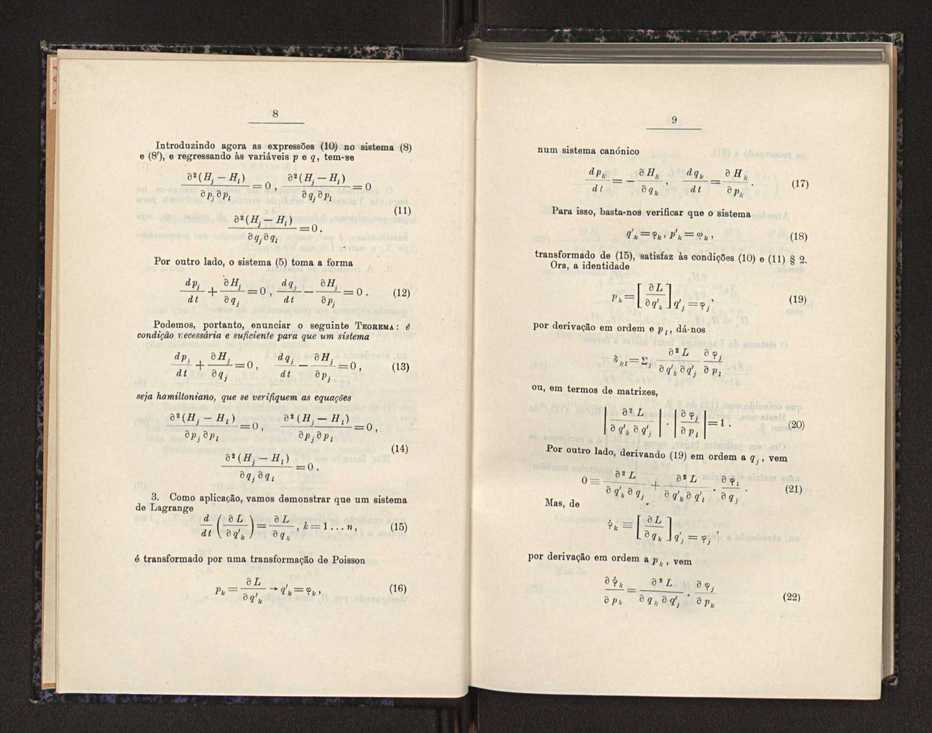 8
Introduzindo agora as expressões (10) no sistema (8)
e (8'), e regressando às variáveis p e q, tem-se
∂²(H_j − H_i) / ∂p_j ∂p_i = 0 , ∂²(H_j − H_i) / ∂q_j ∂p_i = 0
∂²(H_j − H_i) / ∂q_j ∂q_i = 0 . (11)
Por outro lado, o sistema (5) toma a forma
dp_j / dt + ∂H_j / ∂q_j = 0 , dq_j / dt − ∂H_j / ∂p_j = 0 . (12)
Podemos, portanto, enunciar o seguinte TEOREMA: é
condição necessária e suficiente para que um sistema
dp_j / dt + ∂H_j / ∂q_j = 0 , dq_j / dt − ∂H_j / ∂p_j = 0 , (13)
seja hamiltoniano, que se verifiquem as equações
∂²(H_j − H_i) / ∂p_j ∂p_i = 0 , ∂²(H_j − H_i) / ∂p_j ∂p_i = 0 ,
∂²(H_j − H_i) / ∂q_j ∂q_i = 0 . (14)
3. Como aplicação, vamos demonstrar que um sistema
de Lagrange
d / dt (∂L / ∂q'_k) = ∂L / ∂q_k , k = 1 ... n, (15)
é transformado por uma transformação de Poisson
p_k = ∂L / ∂q'_k → q'_k = φ_k , (16)
9
num sistema canónico
dp_k / dt = − ∂H_k / ∂q_k , dq_k / dt = ∂H_k / ∂p_k . (17)
Para isso, basta-nos verificar que o sistema
q'_k = φ_k , p'_k = φ_k , (18)
transformado de (15), satisfaz às condições (10) e (11) § 2.
Ora, a identidade
p_k = [∂L / ∂q'_k] q'_j = φ_j , (19)
por derivação em ordem e p_i , dá-nos
δ_ki = Σ_j ∂²L / ∂q'_k ∂q'_j ∂φ_j / ∂p_i
ou, em termos de matrizes,
| ∂²L / ∂q'_k ∂q'_j | · | ∂φ_j / ∂p_i | = 1 . (20)
Por outro lado, derivando (19) em ordem a q_j , vem
0 = ∂²L / ∂q'_k ∂q_j + ∂²L / ∂q'_k ∂q'_i · ∂φ_i / ∂q_j . (21)
Mas, de
φ̇_k = [∂L / ∂q_k] q'_j = φ_j ,
por derivação em ordem a p_k , vem
∂φ̇_k / ∂p_k = ∂²L / ∂q_k ∂q'_j · ∂φ_j / ∂p_k (22)